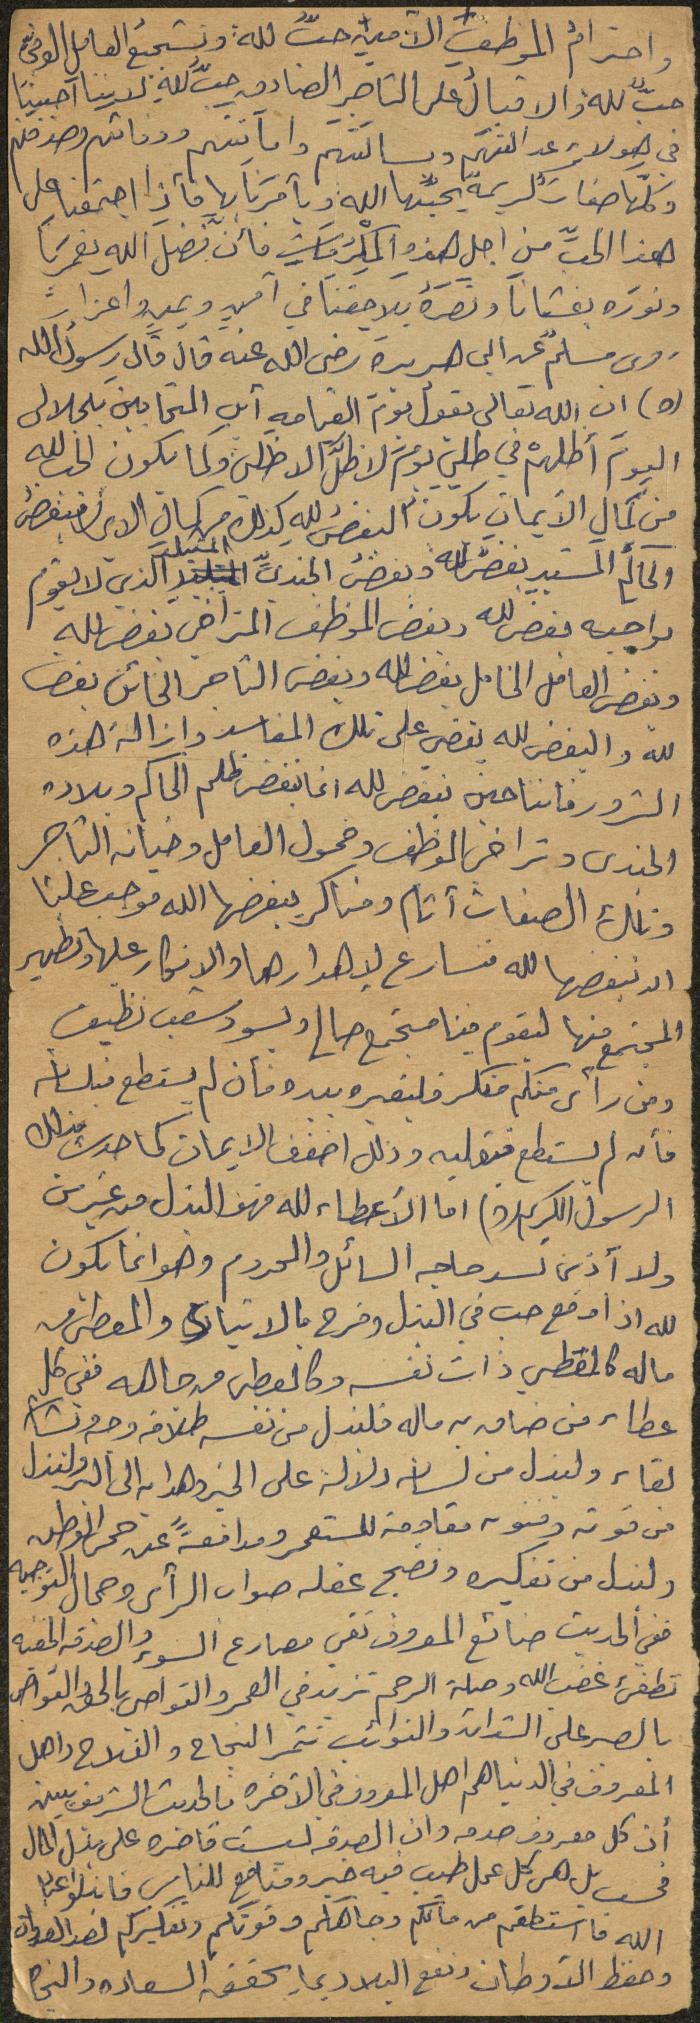 واحترام الموظف الأمين حبٌّ لله وتشجيع العامل الوفيّ
حبٌّ لله والاقبال على التاجر الصادق حبٌّ لله لاننا احببنا
في هؤلاء عدالتهم وبسالتهم وامانتهم ووفائهم وصدقهم
وكلّها صفات كريمة يحبّها الله ويأمرنا بها فأذا اجتمعنا على
هذا الحبّ من اجل هذه المكرمات فأن فضل الله يغمرنا
ونوره يغشانا ونصره يلاحقنا في أمن ويمن واعزاز
روى مسلم عن ابي هريرة رضى الله عنه قال قال رسول الله
(ص) ان الله تعالى يقول يوم القيامه أين المتحابين بجلالى
اليوم أظلهم في ظلي يوم لا ظلّ الا ظلي وكما يكون الحب لله
من كمال الأيمان يكون البغض لله كذلك من كمال الايمان فبغض
الحاكم المستبد بغض لله وبغض الجنديّ المتبلد الذي لا يقوم
بواجبه بغض لله وبغض الموظف المتراخي بغض لله
وبغض العامل الخامل بغض لله وبغض التاجر الخائن بغض
لله والبغض لله يقضي على تلك المفاسد وازالة هذه
الشرور فأننا حين نبغض لله انما نبغض ظلم الحاكم وبلادة
الجندى وتراخى الموظف وخمول العامل وخيانة التاجر
وتلك الصفات أثام ومناكر يبغضها الله فوجب علينا
ان نبغضها لله فنسارع لاهدارها والانكار عليها وتطهير
المجتمع منها ليقوم فينا مجتمع صالح ويسود شعب نظيف
ومن رأى منكم منكر فليغيره بيده فأن لم يستطع فبلسانه
فأن لم يستطع فبقلبه وذلك اضعف الايمان كما حدث بذلك
الرسول الكريم (ص) اما الأعطاء لله فهو البذل من غير من
ولا أذى لسد حاجه السائل والمحروم وهو انما يكون
لله اذا وقع حب في البذل وفرح بالاتيان والمعطى من
ماله كالمعطي ذات نفسه وكالمعطى من جاهه ففي كل
عطاء فمن ضاق به ماله فليبذل من نفسه طلاقة وجه وبشاشة
لقاء وليبذل من لسانه دلالة على الخير وهداية الى البر وليبذل
من قوته وفتوته مقاومة للمستعمر ومدافعةً عن حمى الوطن
وليبذل من تفكيره ونضج عقله صواب الرأى وجمال التوجيه
ففي الحديث صنائع المعروف تقي مصارع السوء والصدقة الخفيه
تطفئ غضب الله وصلة الرحم تزيد في العمر والتواصى بالحق والتواصى
بالصبر على الشدائد والنوائب تثمر النجاح والفلاح واهل
المعروف في الدنيا هم اهل المعروف في الآخره فالحديث الشريف يبين
أن كل معروف صدقه وان الصدقه ليست قاصره على بذل المال
فحسب بل هى كل عمل طيب فيه خير ومنافع للناس فابذلوا عباد
الله ما استطعتم من مالكم وجاهكم وقوتكم وتفكيركم لصد العدوان
وحفظ الأوطان ونفع البلاد بما يحقق السعاده والنجاح